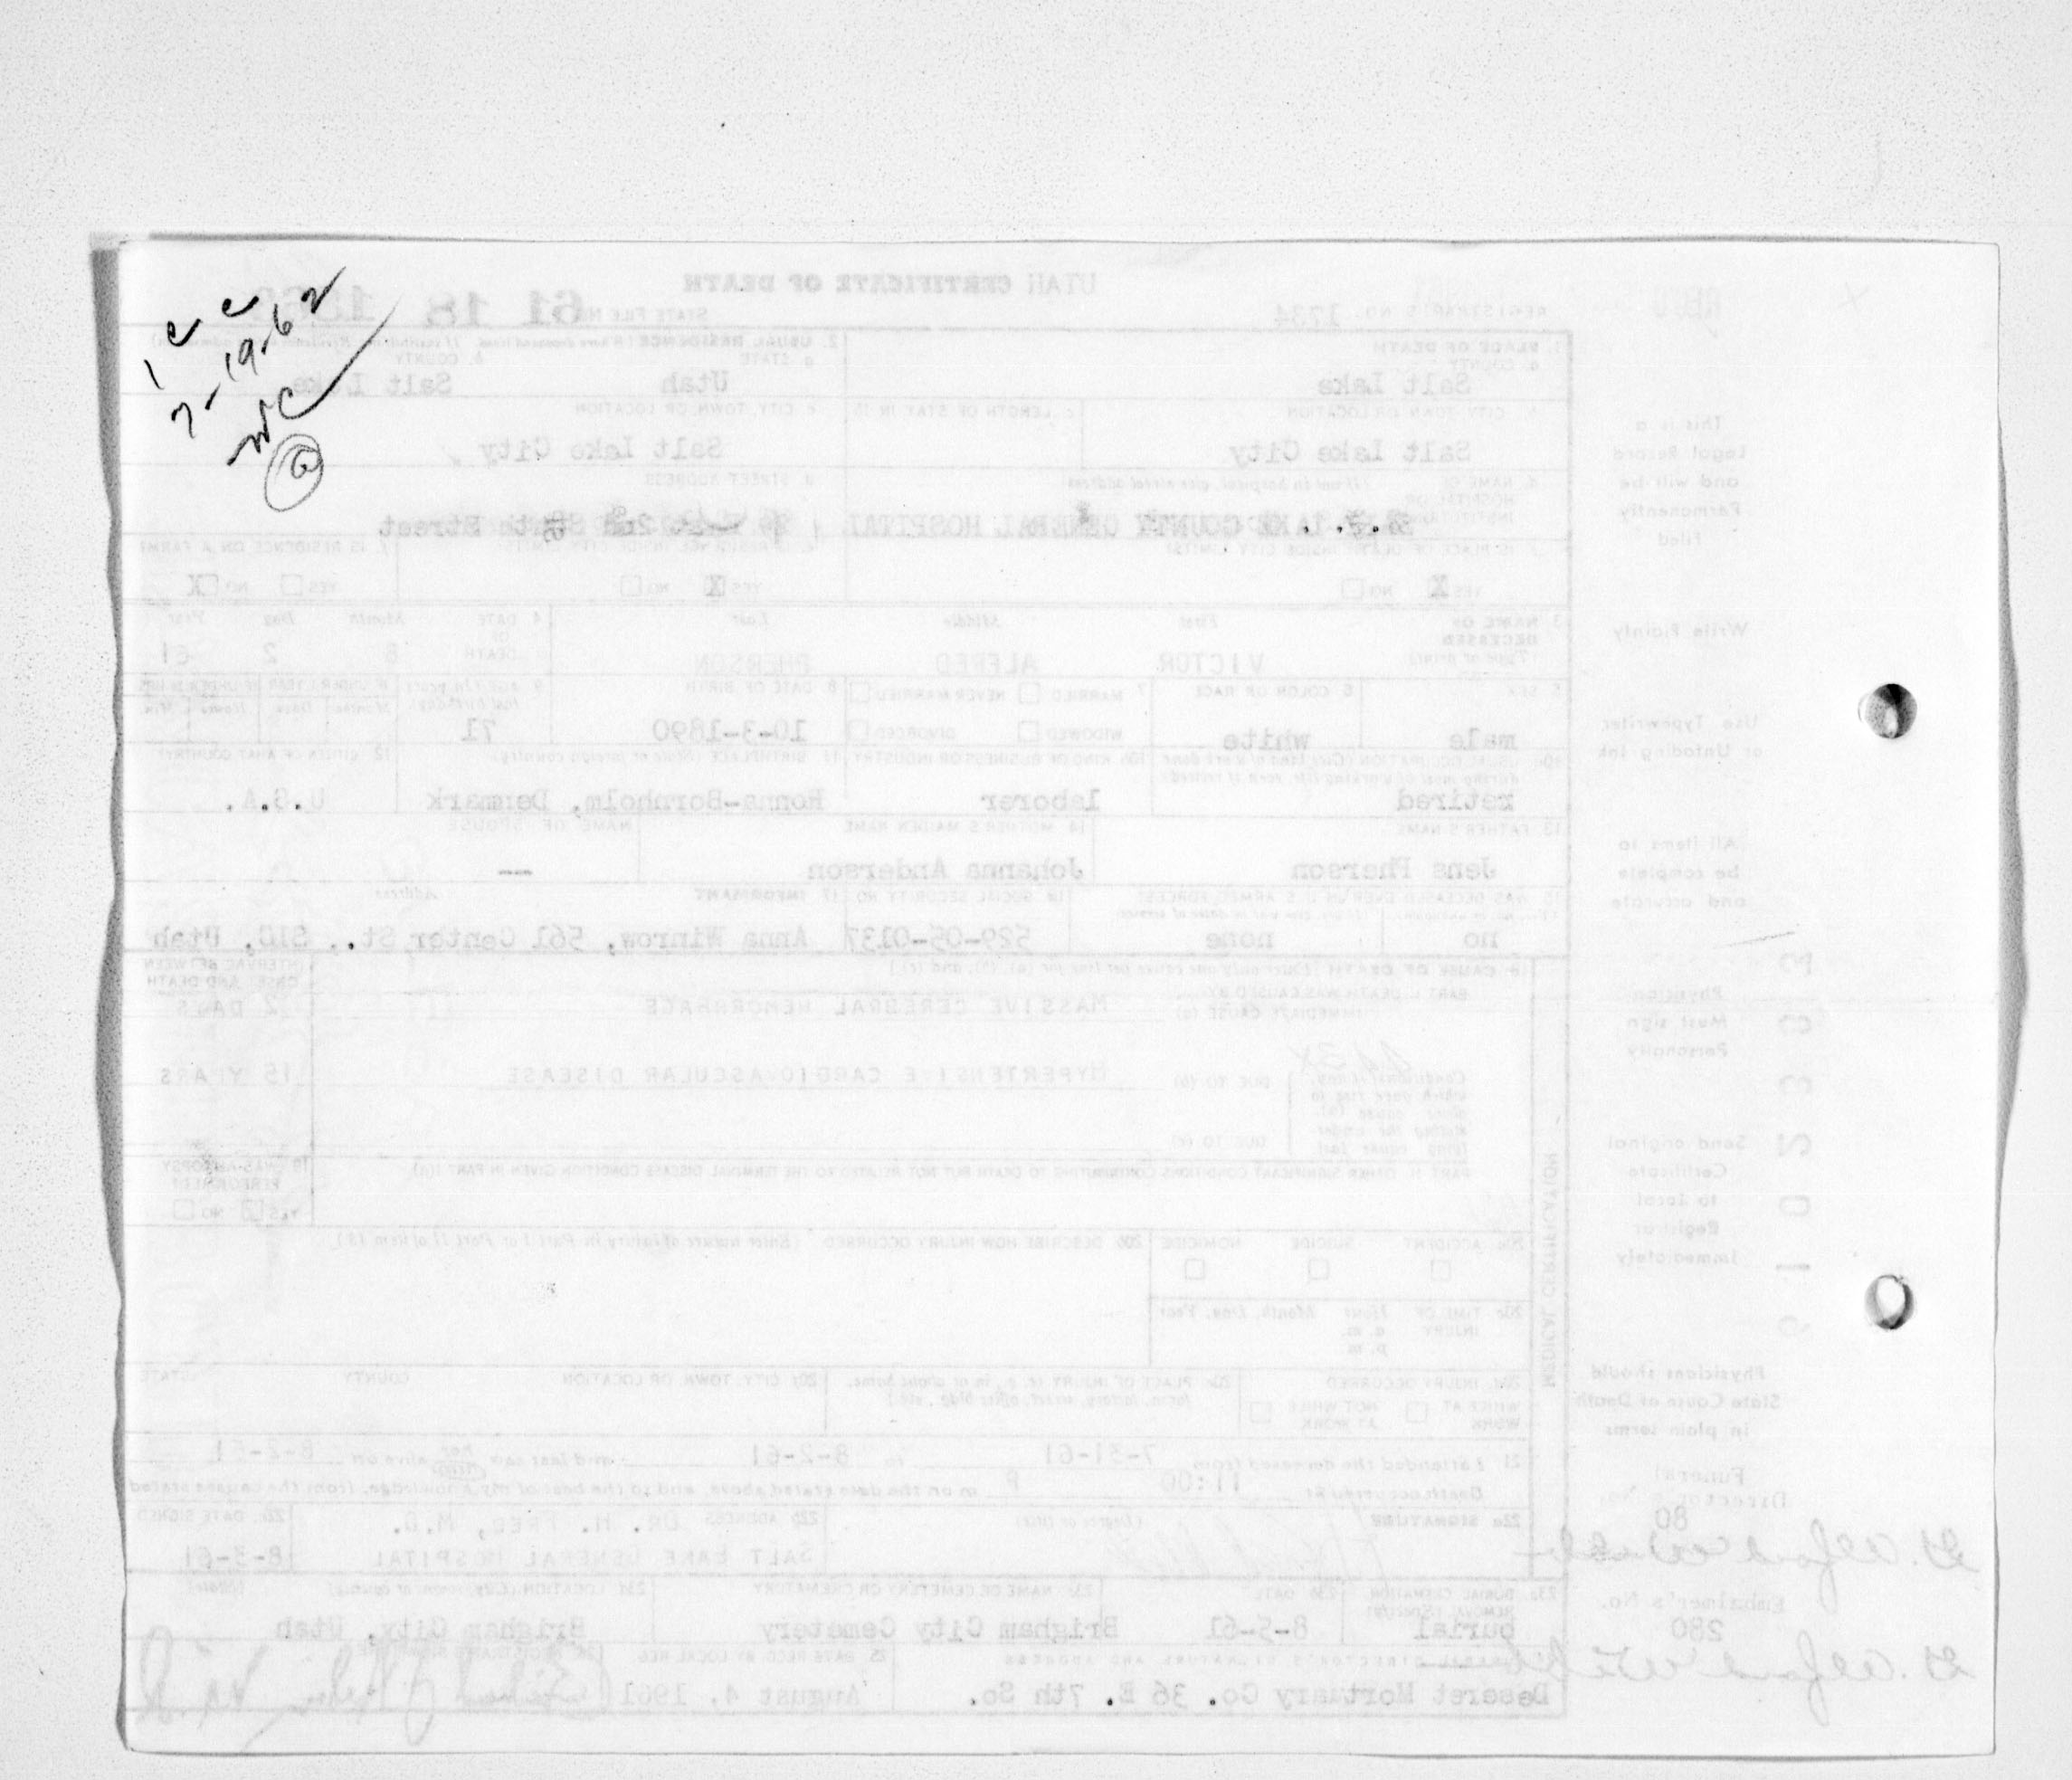 1 cc
7-19-62
UTAH CERTIFICATE OF DEATH
REGISTRAR'S NO. 1734
STATE FILE NO. 61 18
1. PLACE OF DEATH
a. COUNTY
Salt Lake
2. USUAL RESIDENCE
a. STATE
Utah
b. COUNTY
Salt Lake
b. CITY, TOWN OR LOCATION
Salt Lake City
c. LENGTH OF STAY IN 1b
c. CITY, TOWN OR LOCATION
Salt Lake City
d. NAME OF HOSPITAL OR INSTITUTION (If not in hospital, give street address)
LAKE COUNTY GENERAL HOSPITAL
d. STREET ADDRESS
Street
e. IS PLACE OF DEATH INSIDE CITY LIMITS?
YES X NO
e. IS RESIDENCE INSIDE CITY LIMITS?
YES X NO
f. IS RESIDENCE ON A FARM?
YES NO X
3. NAME OF DECEASED (Type or print)
First Middle Last
VICTOR ALFRED PHERSON
4. DATE OF DEATH
Month Day Year
8 2 61
5. SEX
male
6. COLOR OR RACE
white
7. MARRIED NEVER MARRIED
WIDOWED DIVORCED
8. DATE OF BIRTH
10-3-1890
9. AGE (In years last birthday)
71
IF UNDER 1 YEAR IF UNDER 24 HRS.
Months Days Hours Min.
10a. USUAL OCCUPATION (Give kind of work done during most of working life, even if retired)
retired
10b. KIND OF BUSINESS OR INDUSTRY
laborer
11. BIRTHPLACE (State or foreign country)
Ronna-Bornholm, Denmark
12. CITIZEN OF WHAT COUNTRY?
U.S.A.
13. FATHER'S NAME
Jens Pherson
14. MOTHER'S MAIDEN NAME
Johanna Anderson
NAME OF SPOUSE
--
15. WAS DECEASED EVER IN U.S. ARMED FORCES?
no none
16. SOCIAL SECURITY NO.
529-05-0137
17. INFORMANT Address
Anna Winrow, 561 Center St., SLC, Utah
18. CAUSE OF DEATH [Enter only one cause per line for (a), (b), and (c).]
PART I. DEATH WAS CAUSED BY:
IMMEDIATE CAUSE (a)
MASSIVE CEREBRAL HEMORRHAGE
INTERVAL BETWEEN ONSET AND DEATH
2 DAYS
Conditions, if any, which gave rise to above cause (a), stating the underlying cause last.
DUE TO (b)
HYPERTENSIVE CARDIOVASCULAR DISEASE
15 YEARS
DUE TO (c)
PART II. OTHER SIGNIFICANT CONDITIONS CONTRIBUTING TO DEATH BUT NOT RELATED TO THE TERMINAL DISEASE CONDITION GIVEN IN PART I(a)
19. WAS AUTOPSY PERFORMED?
YES NO
20a. ACCIDENT SUICIDE HOMICIDE
20b. DESCRIBE HOW INJURY OCCURRED (Enter nature of injury in Part I or Part II of item 18.)
20c. TIME OF INJURY Hour Month, Day, Year
a. m.
p. m.
20d. INJURY OCCURRED
WHILE AT WORK NOT WHILE AT WORK
20e. PLACE OF INJURY (e. g., in or about home, farm, factory, street, office bldg., etc.)
20f. CITY, TOWN, OR LOCATION COUNTY STATE
21. I attended the deceased from 7-31-61 to 8-2-61 and last saw her him alive on 8-2-61
Death occurred at 11:00 P m on the date stated above, and to the best of my knowledge, from the causes stated
22a. SIGNATURE (Degree or title)
22b. ADDRESS
DR. H. FRED, M.D.
SALT LAKE GENERAL HOSPITAL
22c. DATE SIGNED
8-3-61
23a. BURIAL, CREMATION, REMOVAL (Specify)
burial
23b. DATE
8-5-61
23c. NAME OF CEMETERY OR CREMATORY
Brigham City Cemetery
23d. LOCATION (City, town, or county) (State)
Brigham City, Utah
FUNERAL DIRECTOR'S SIGNATURE AND ADDRESS
Deseret Mortuary Co. 36 E. 7th So.
25. DATE REC'D BY LOCAL REG.
August 4, 1961
MEDICAL CERTIFICATION
This is a
Legal Record
and will be
Permanently
Filed
Write Plainly
Use Typewriter
or Unfading Ink
All items to
be complete
and accurate
Physician
Must sign
Personally
Send original
Certificate
to Local
Registrar
Immediately
Physicians should
State Cause of Death
in plain terms
Funeral
Director's No.
80
Embalmer's No.
280